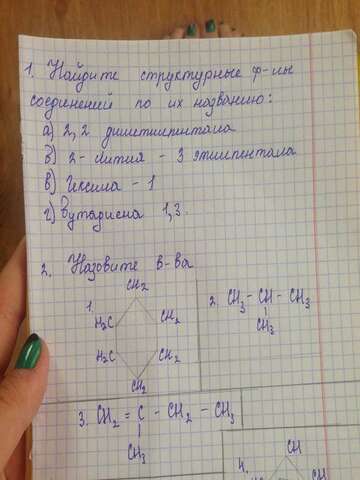 1. Найдите структурные ф-лы
соединений по их названию:
а) 2,2 диметилпентала
б) 2 - лития - 3 этилпентала
в) Гексила - 1
г) Бутадиена 1,3.
2. Назовите в-ва
1.
CH2
H2C CH2
H2C CH2
CH2
2. CH3 - CH - CH3
CH3
3. CH2 = C - CH2 - CH3
CH3
4. CH